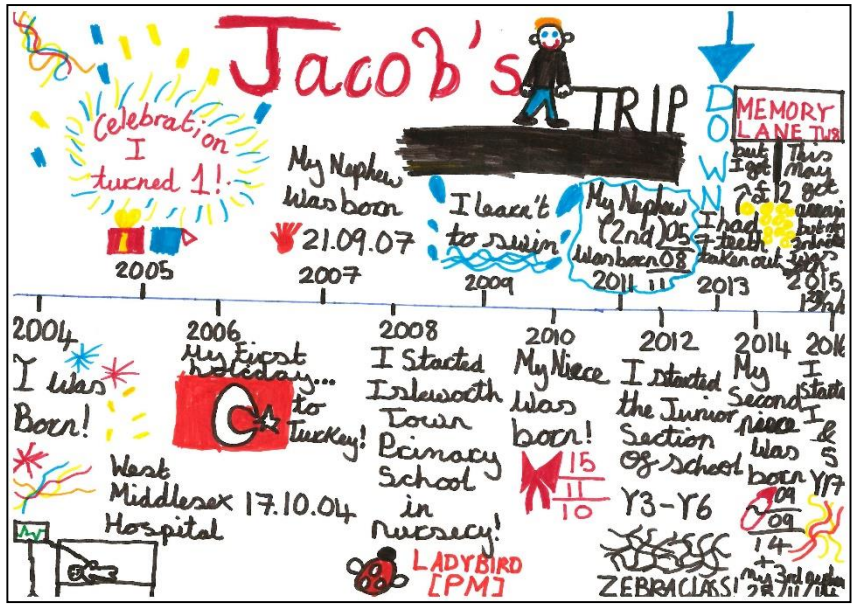 Jacob's
TRIP
DOWN
MEMORY
LANE
Celebration
I
turned 1!
2005
My Nephew
was born
21.09.07
2007
I learn't
to swim
2009
My Nephew
(2nd) 05
was born 08
2011 11
I had
7 teeth
taken out
2013
but
I got
This
may
got
2015
2004
I was
Born!
West
Middlesex 17.10.04
Hospital
2006
My First
holiday...
to
Turkey!
2008
I Started
Isleworth
Town
Primary
School
in
nursery!
LADYBIRD
[PM]
2010
My Niece
was
born!
15
11
10
2012
I started
the Junior
Section
of school
Y3-Y6
ZEBRA CLASS!
2014
My
Second
niece
was
born
09
09
14
+
My 3rd
2016
I
Starte
I
&
S
Y7